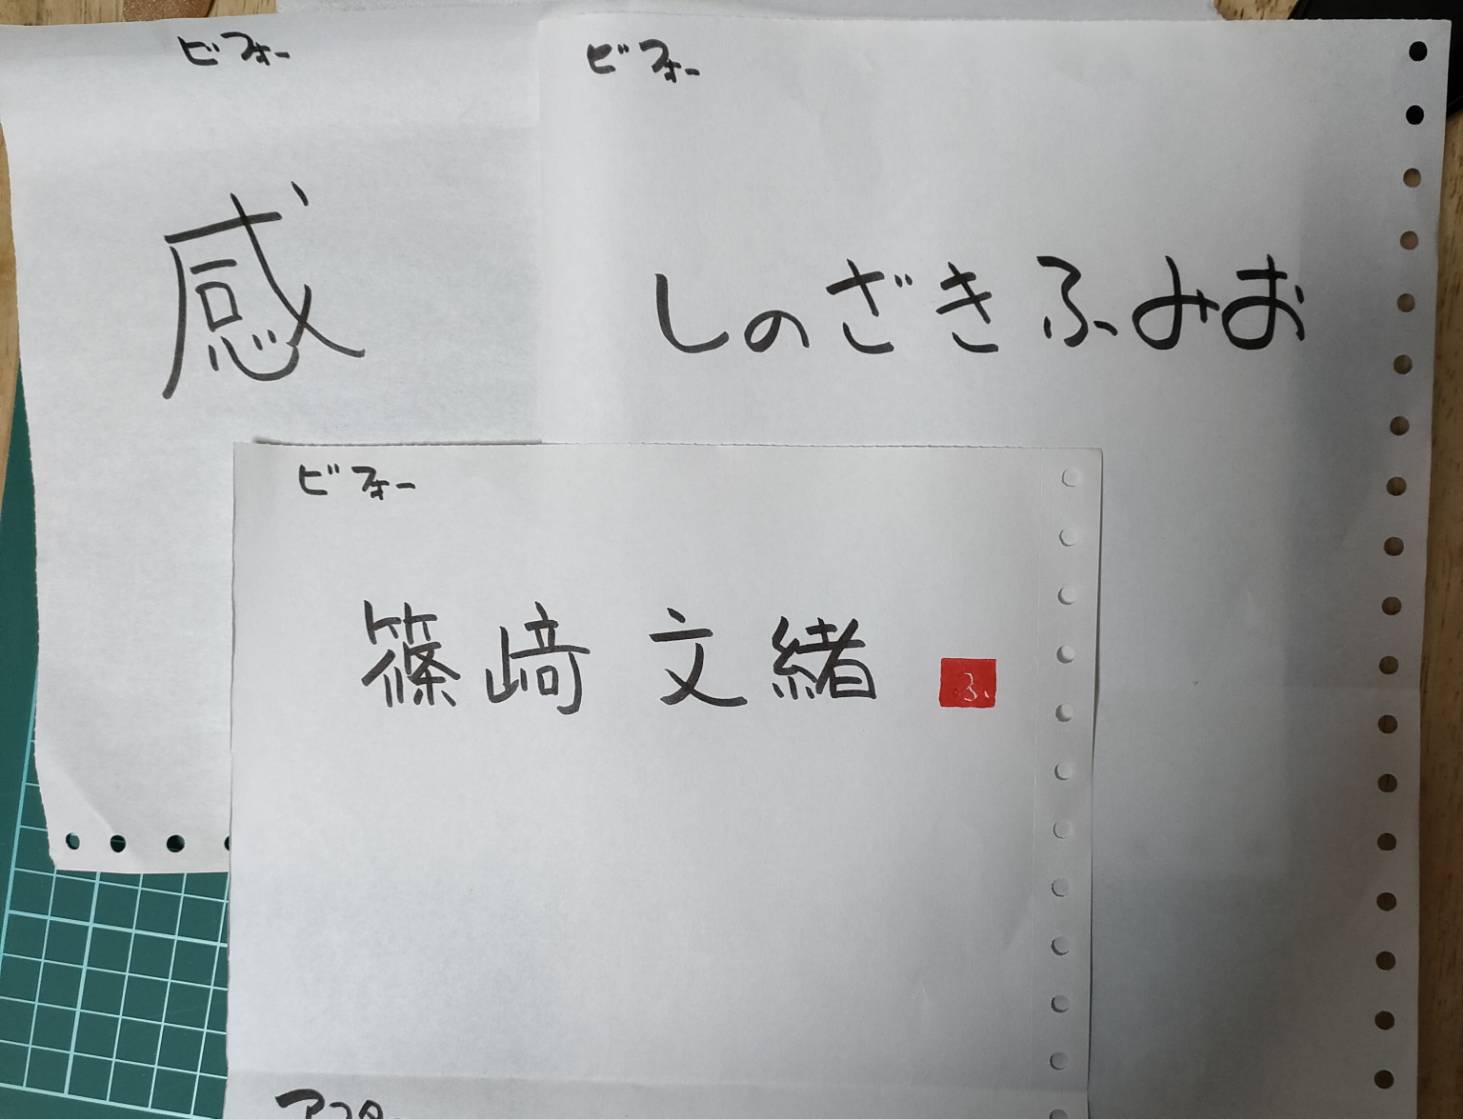 ビフォー
感
ビフォー
しのざきふみお
ビフォー
篠﨑 文緒
ふ
アフター